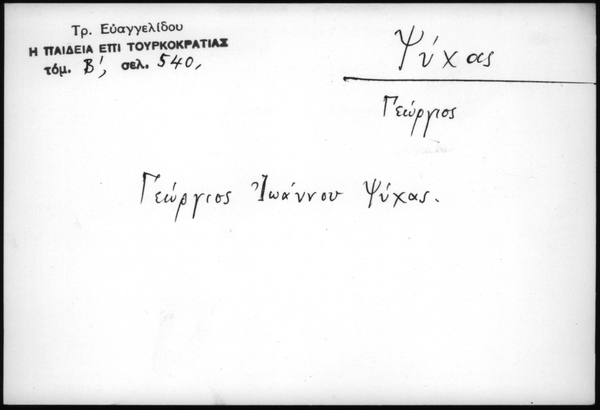 Τρ. Εὐαγγελίδου
Η ΠΑΙΔΕΙΑ ΕΠΙ ΤΟΥΡΚΟΚΡΑΤΙΑΣ
τόμ. Β', σελ. 540,
Ψύχας
Γεώργιος
Γεώργιος Ἰωάννου Ψύχας.